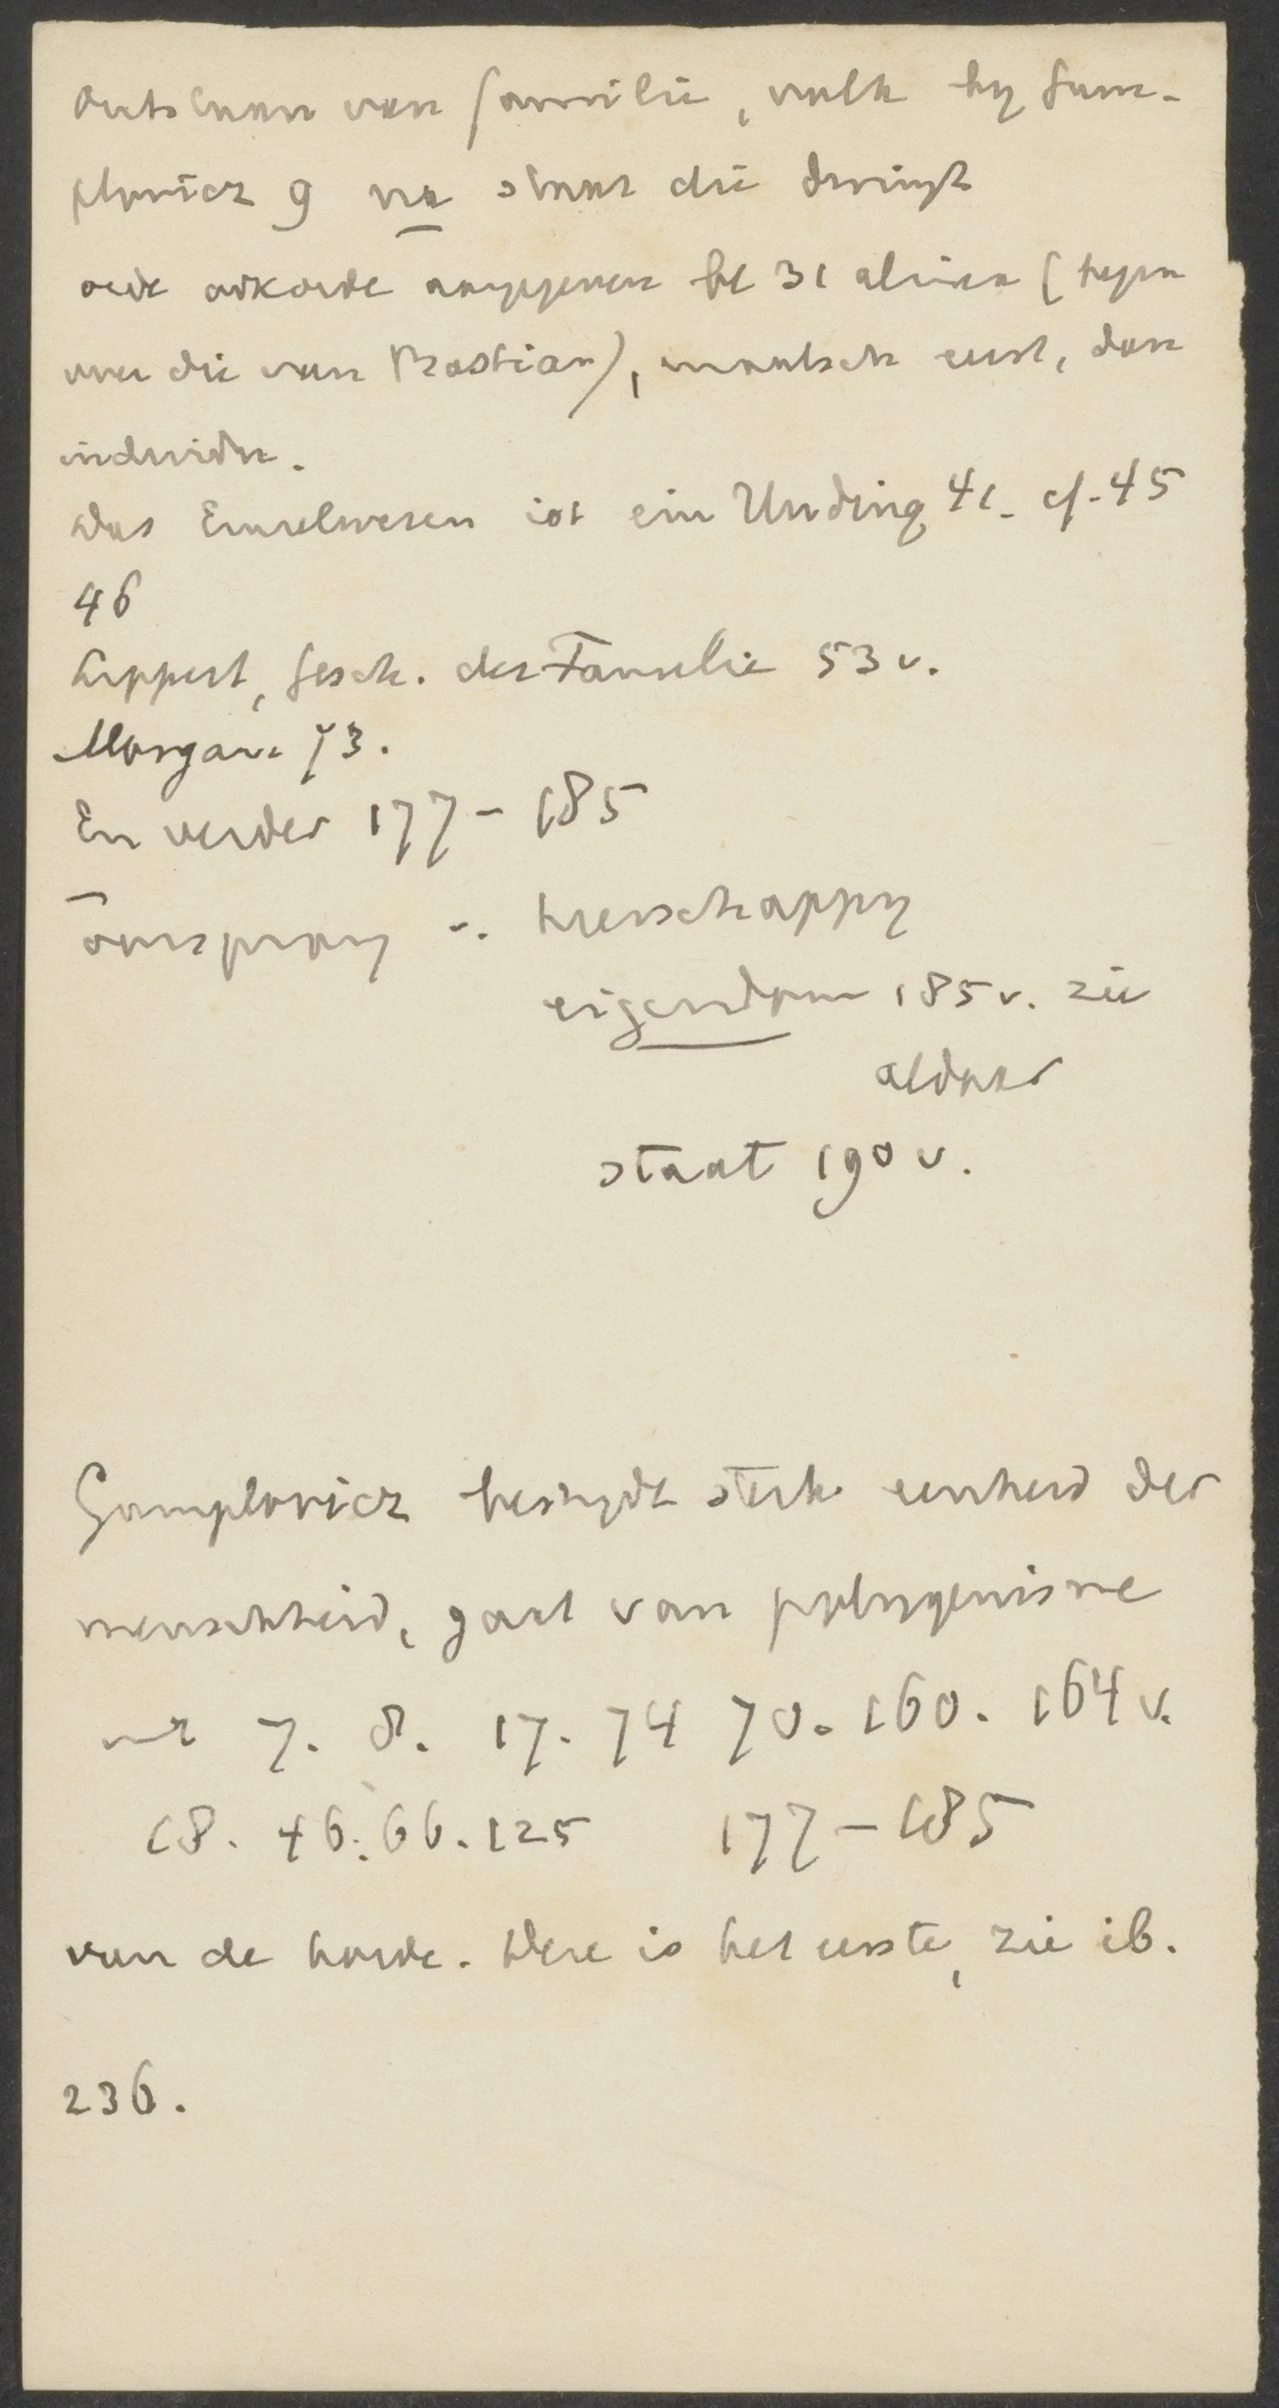 Ontstaan van familie, volk by Gum-
plovicz 9 na staat die dwingt
oude orkorde aangegeven bl 31 alinea (tegen
over die van Bastian), maatsch eerst, dan
individu.
Das Einzelwesen ist ein Unding 41. cf. 45
46
Lippert, Gesch. der Familie 53 v.
Morgan 73.
En verder 177-185
Oorsprong v. heerschappy
eigendom 185 v. zie
aldaar
staat 190 v.
Gumplovicz bestrydt sterk eenheid der
menschheid, gaat van polygenisme
uit 7. 8. 17. 74 70. 160. 164 v.
18. 46. 66. 125 177-185
van de horde. Deze is het eerste, zie ib.
236.